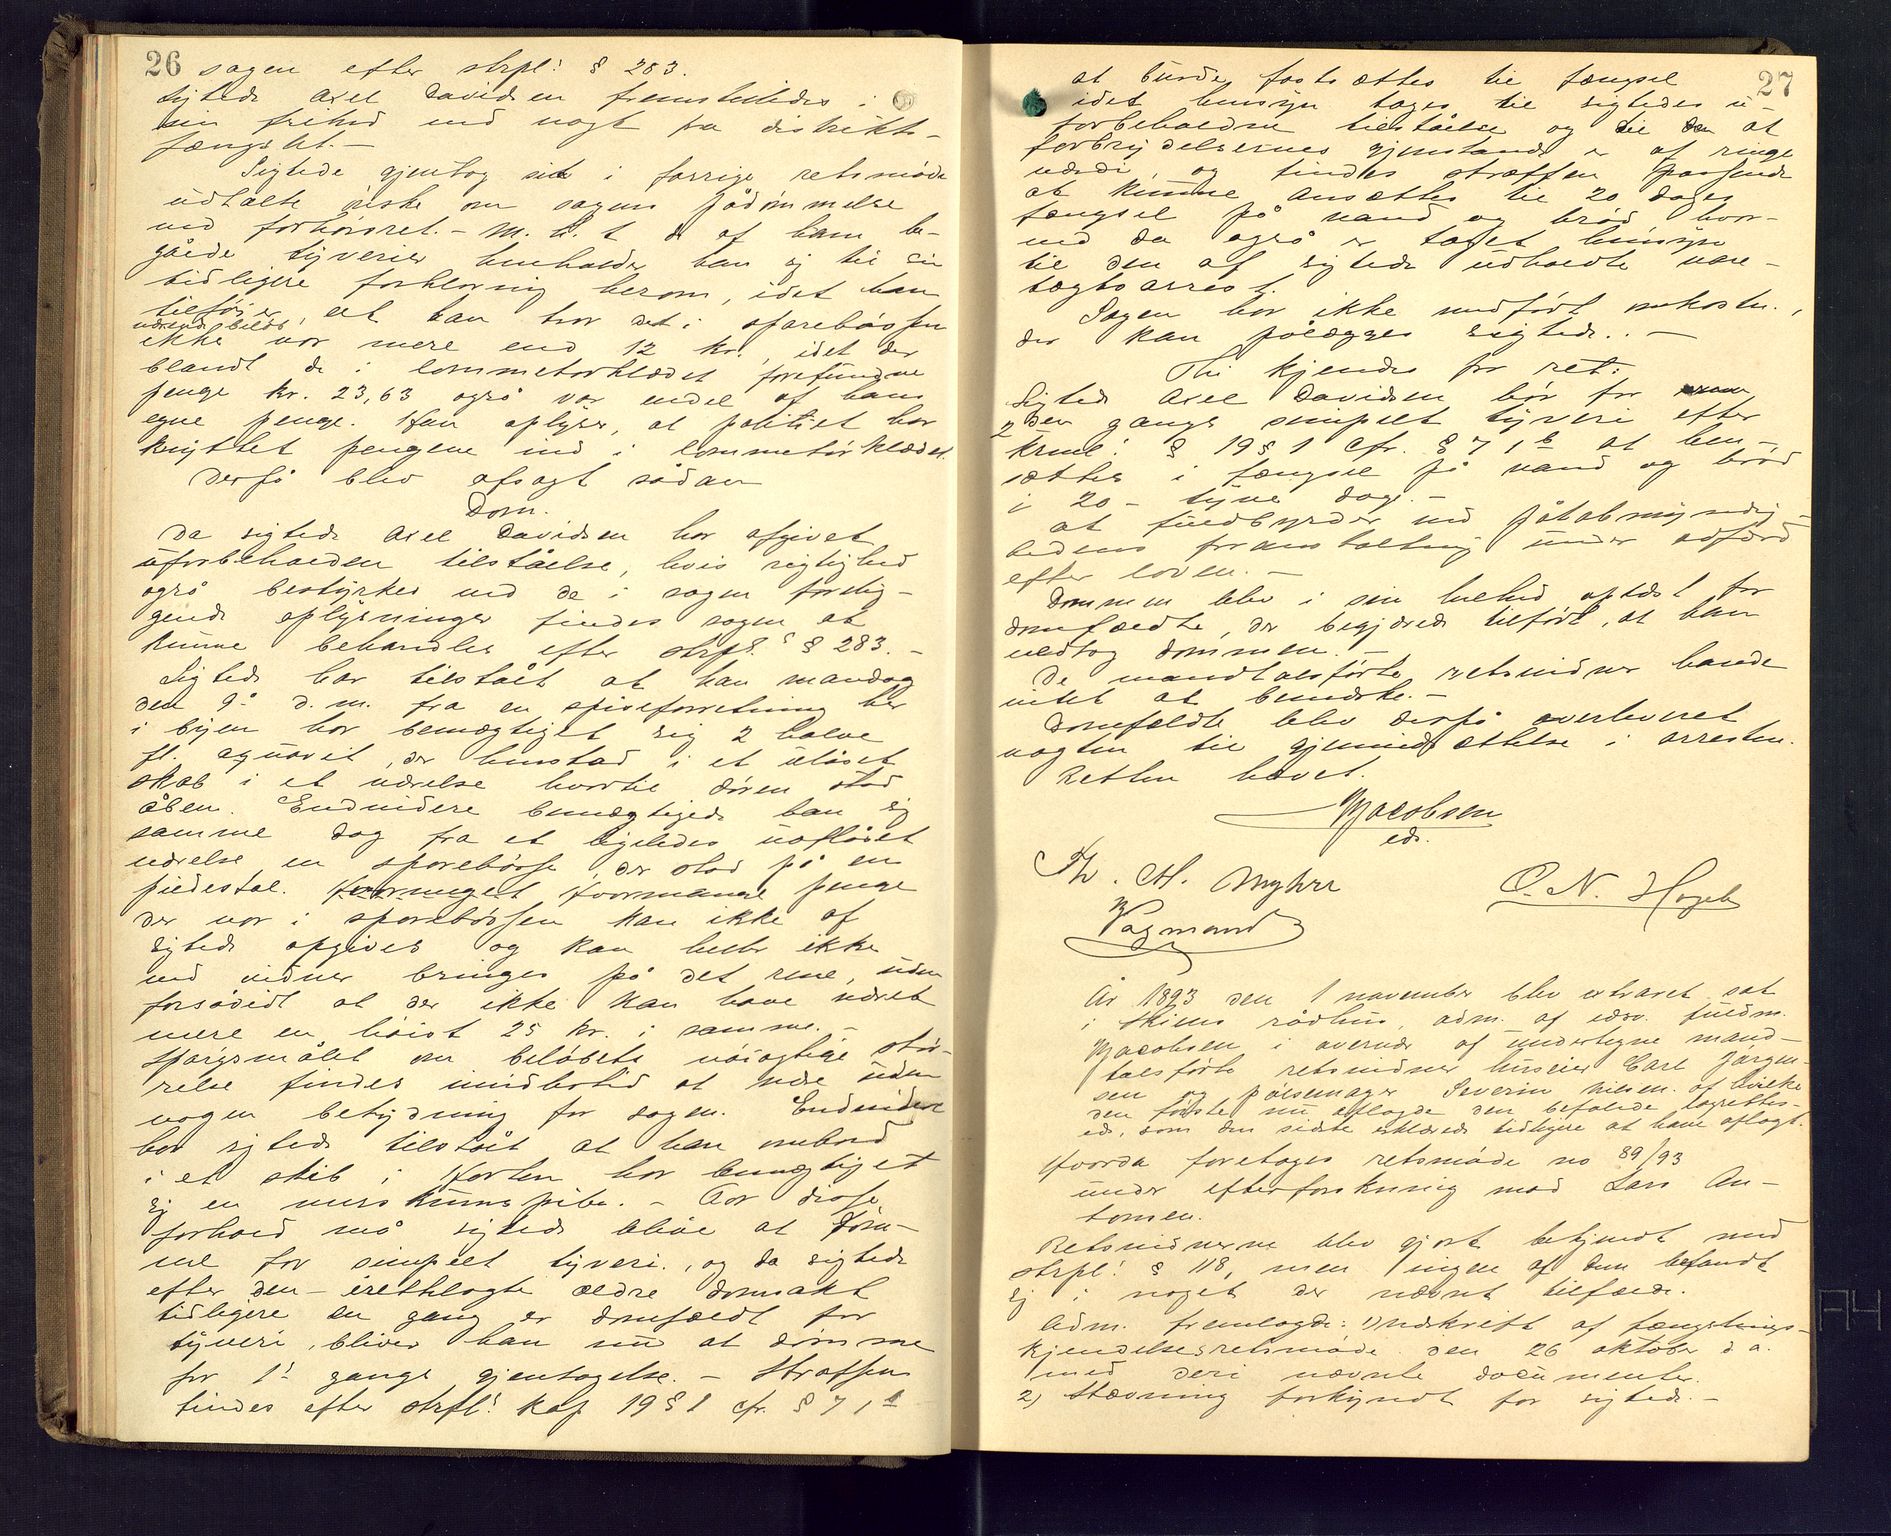 26
sagen efter strpl: § 283.
Sigtede Axel Davidsen fremstilledes i
sin frihed med vagt fra distrikts-
fængslet. -
Sigtede gjentog sit i forrige retsmøde
udtalte ønske om sagens pådømmelse
ved forhørsret. - M. h. t. de af ham be-
gåede tyverier henholder han sig til sin
tidligere forklaring herom, idet han
tilføier, at han tror det i sparebøssen
værende beløb
ikke var mere end 12 kr., idet der
blandt de i lommetørklædet forefundne
penge kr. 23,63 også var endel af hans
egne penge. Han oplyser, at politiet har
knyttet pengene ind i lommetørklædet.
Derpå blev afsagt sådan
Dom.
Da sigtede Axel Davidsen har afgivet
uforbeholden tilståelse, hvis rigtighed
også bestyrkes ved de i sagen forelig-
gende oplysninger findes sagen at
kunne behandles efter strpl: § 283. -
Sigtede har tilstået at han mandag
den 9: d. m. fra en spiseforretning her
i byen har bemægtiget sig 2 halve
fl. aquavit, der henstod i et ulåset
skab i et værelse hvortil døren stod
åben. Endvidere bemægtigede han sig
samme dag fra et ligeledes uaflåset
værelse en sparebøsse, der stod på en
piedestal. Hvormeget Hvormange penge
der var i sparebøssen kan ikke af
sigtede opgives og kan heller ikke
ved vidner bringes på det rene, uden
forsåvidt at der ikke kan have været
mere en høist 25 kr. i samme. -
Spørgsmålet om beløbets nøiagtige stør-
relse findes imidlertid at være uden
nogen betydning for sagen. Endvidere
har sigtede tilstået at han ombord
i et skib i Horten har bemægtiget
sig en merskumspibe. - For disse
forhold må sigtede blive at døm-
me for simpelt tyveri, og da sigtede
efter den irettelagte ældre domsakt
tidligere en gang er domfældt for
tyveri, bliver han nu at dømme
for 1: gangs gjentagelse. - Straffen
findes efter strfl: kap 19 § 1 cfr. § 7, 1 b
27
at burde fastsættes til fængsel
idet hensyn tages til sigtedes u-
forbeholdne tilståelse og til den at
forbrydelsernes gjenstand er af ringe
værdi og findes straffen passende
at kunne ansættes til 20 dages
fængsel på vand og brød hvor-
ved da også er taget hensyn
til den af sigtede udholdte vare-
tægtsarrest.
Sagen har ikke medført omkostn.,
der kan pålægges sigtede. -
Thi kjendes for ret:
Sigtede Axel Davidsen bør for
2den gangs simpelt tyveri efter
kriml: § 19 § 1 cfr. § 7, 1 b at hen-
sættes i fængsel på vand og brød
i 20 - tyve dage. -
At fuldbyrdes ved påtalemyndig-
hedens foranstaltning under adfærd
efter loven. -
Dommen blev i sin helhed oplæst for
domfældte, der begjærede tilført, at han
vedtog dommen. -
De mandtalsførte retsvidner havde
intet at bemærke. -
Domfældte blev derpå overleveret
vagten til gjenindsættelse i arresten.
Retten hævet.
Jacobsen
eds.
Th. H. Myhre
C. N. Hageb
Vagmand
År 1893 den 1 november blev extraret sat
i Skiens rådhus, adm. af edsv. fuldm.
Jacobsen i overvær af undertegne mand-
talsførte retsvidner huseier Carl Jørgen-
sen og pølsemager Severin Nilsen. af hvilke
den første nu aflagde den befalede lagrettes-
ed, som den sidste erklærede tidligere at have aflagt.
Hvorda foretoges retsmøde no 89/93
under efterforskning mod Lars An-
tonsen.
Retsvidnerne blev gjort bekjendt med
strpl: § 118, men ingen af dem befandt
sig i noget der nævnt tilfælde.
Adm. fremlagde: 1) Udskrift af fængslings-
kjendelsesretsmøde den 26 oktober d. a.
med deri nævnte documenter.
2) Stævning forkyndt for sigtede. -